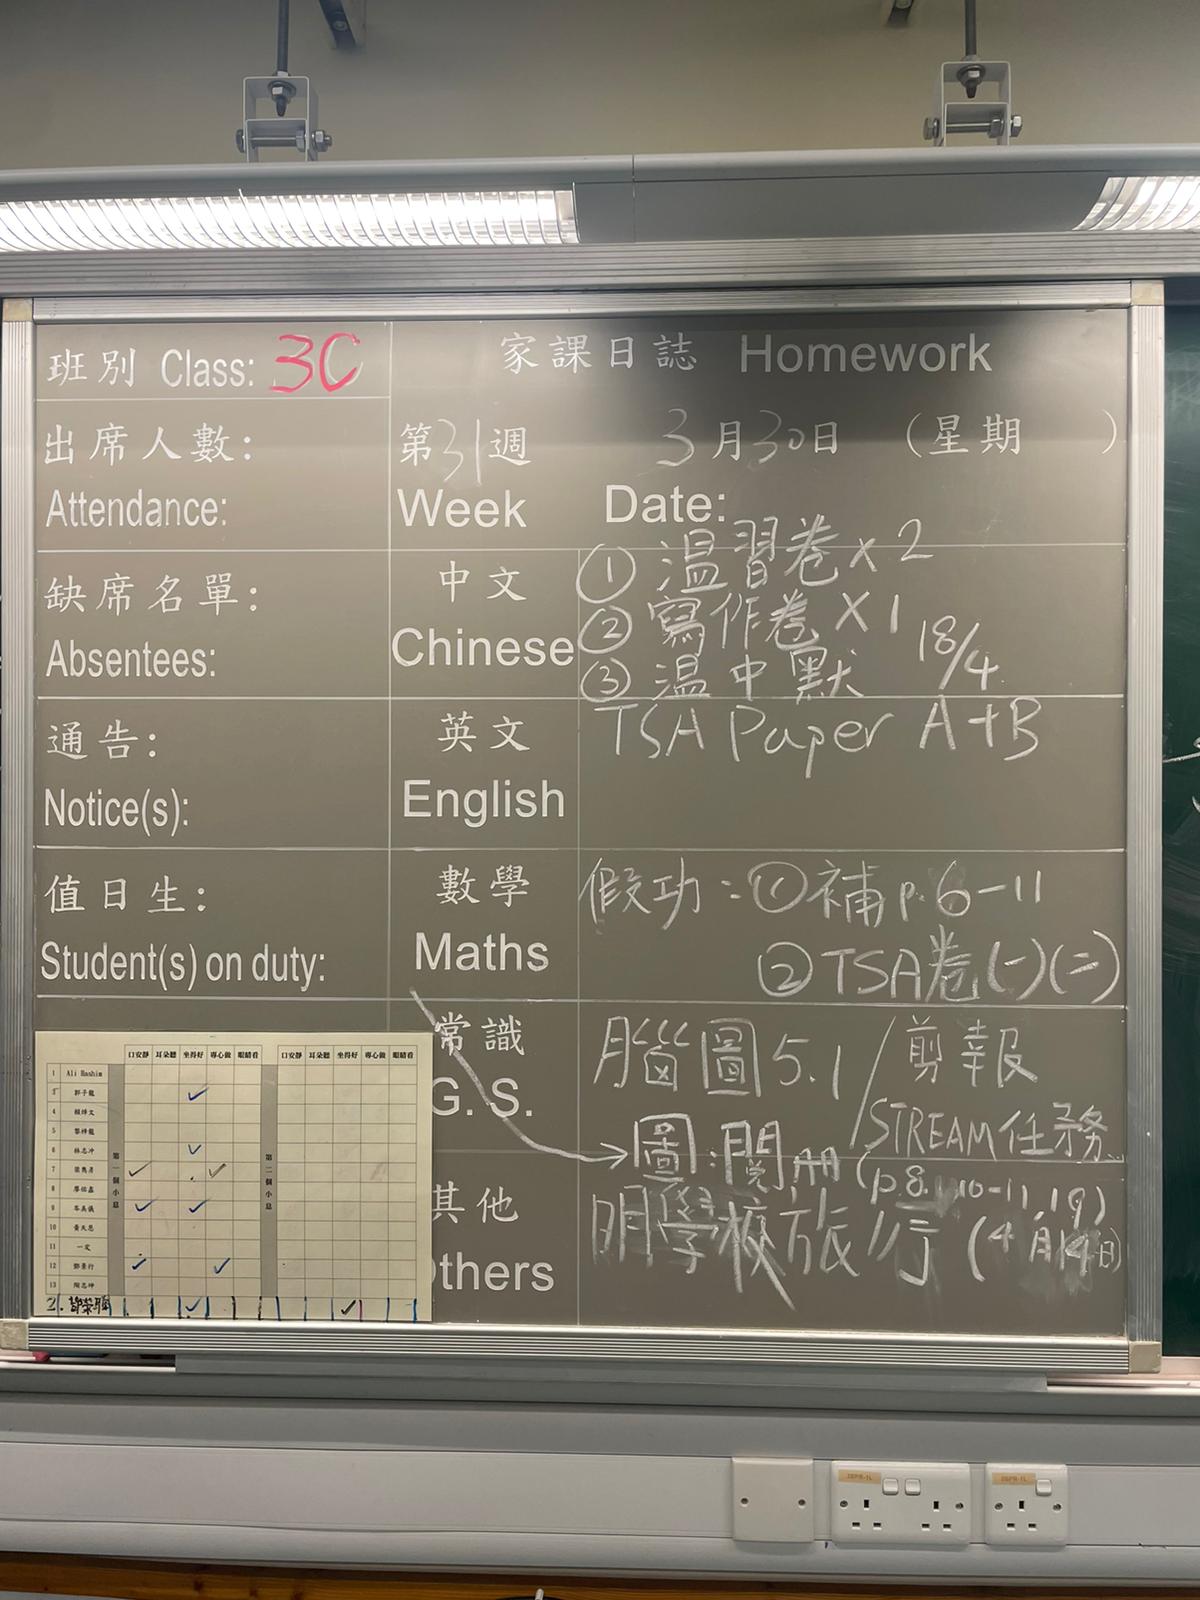 班別 Class: 3C
家課日誌 Homework
出席人數:
Attendance:
第31週 3月30日 (星期 )
Week Date:
缺席名單:
Absentees:
中文
Chinese
① 溫習卷 x 2
② 寫作卷 x 1
③ 溫中默 18/4
通告:
Notice(s):
英文
English
TSA Paper A+B
值日生:
Student(s) on duty:
數學
Maths
假功:① 補 p.6-11
② TSA卷(一)(二)
常識
G. S.
腦圖 5.1/剪報
STREAM任務
圖:閱冊 (p8, 10-11, 19)
其他
Others
明學校旅行 (4月14日)
口安靜 耳朵聽 坐得好 專心做 眼睛看 口安靜 耳朵聽 坐得好 專心做 眼睛看
第一個小息
第二個小息
1 Ali Hashim
3 郭子龍
4
5
6 林志冲
7
8
9
10 黃天恩
11 一定
12 鄧景行
13 陶志坤
2.
DBPR-1L
DBPR-1L